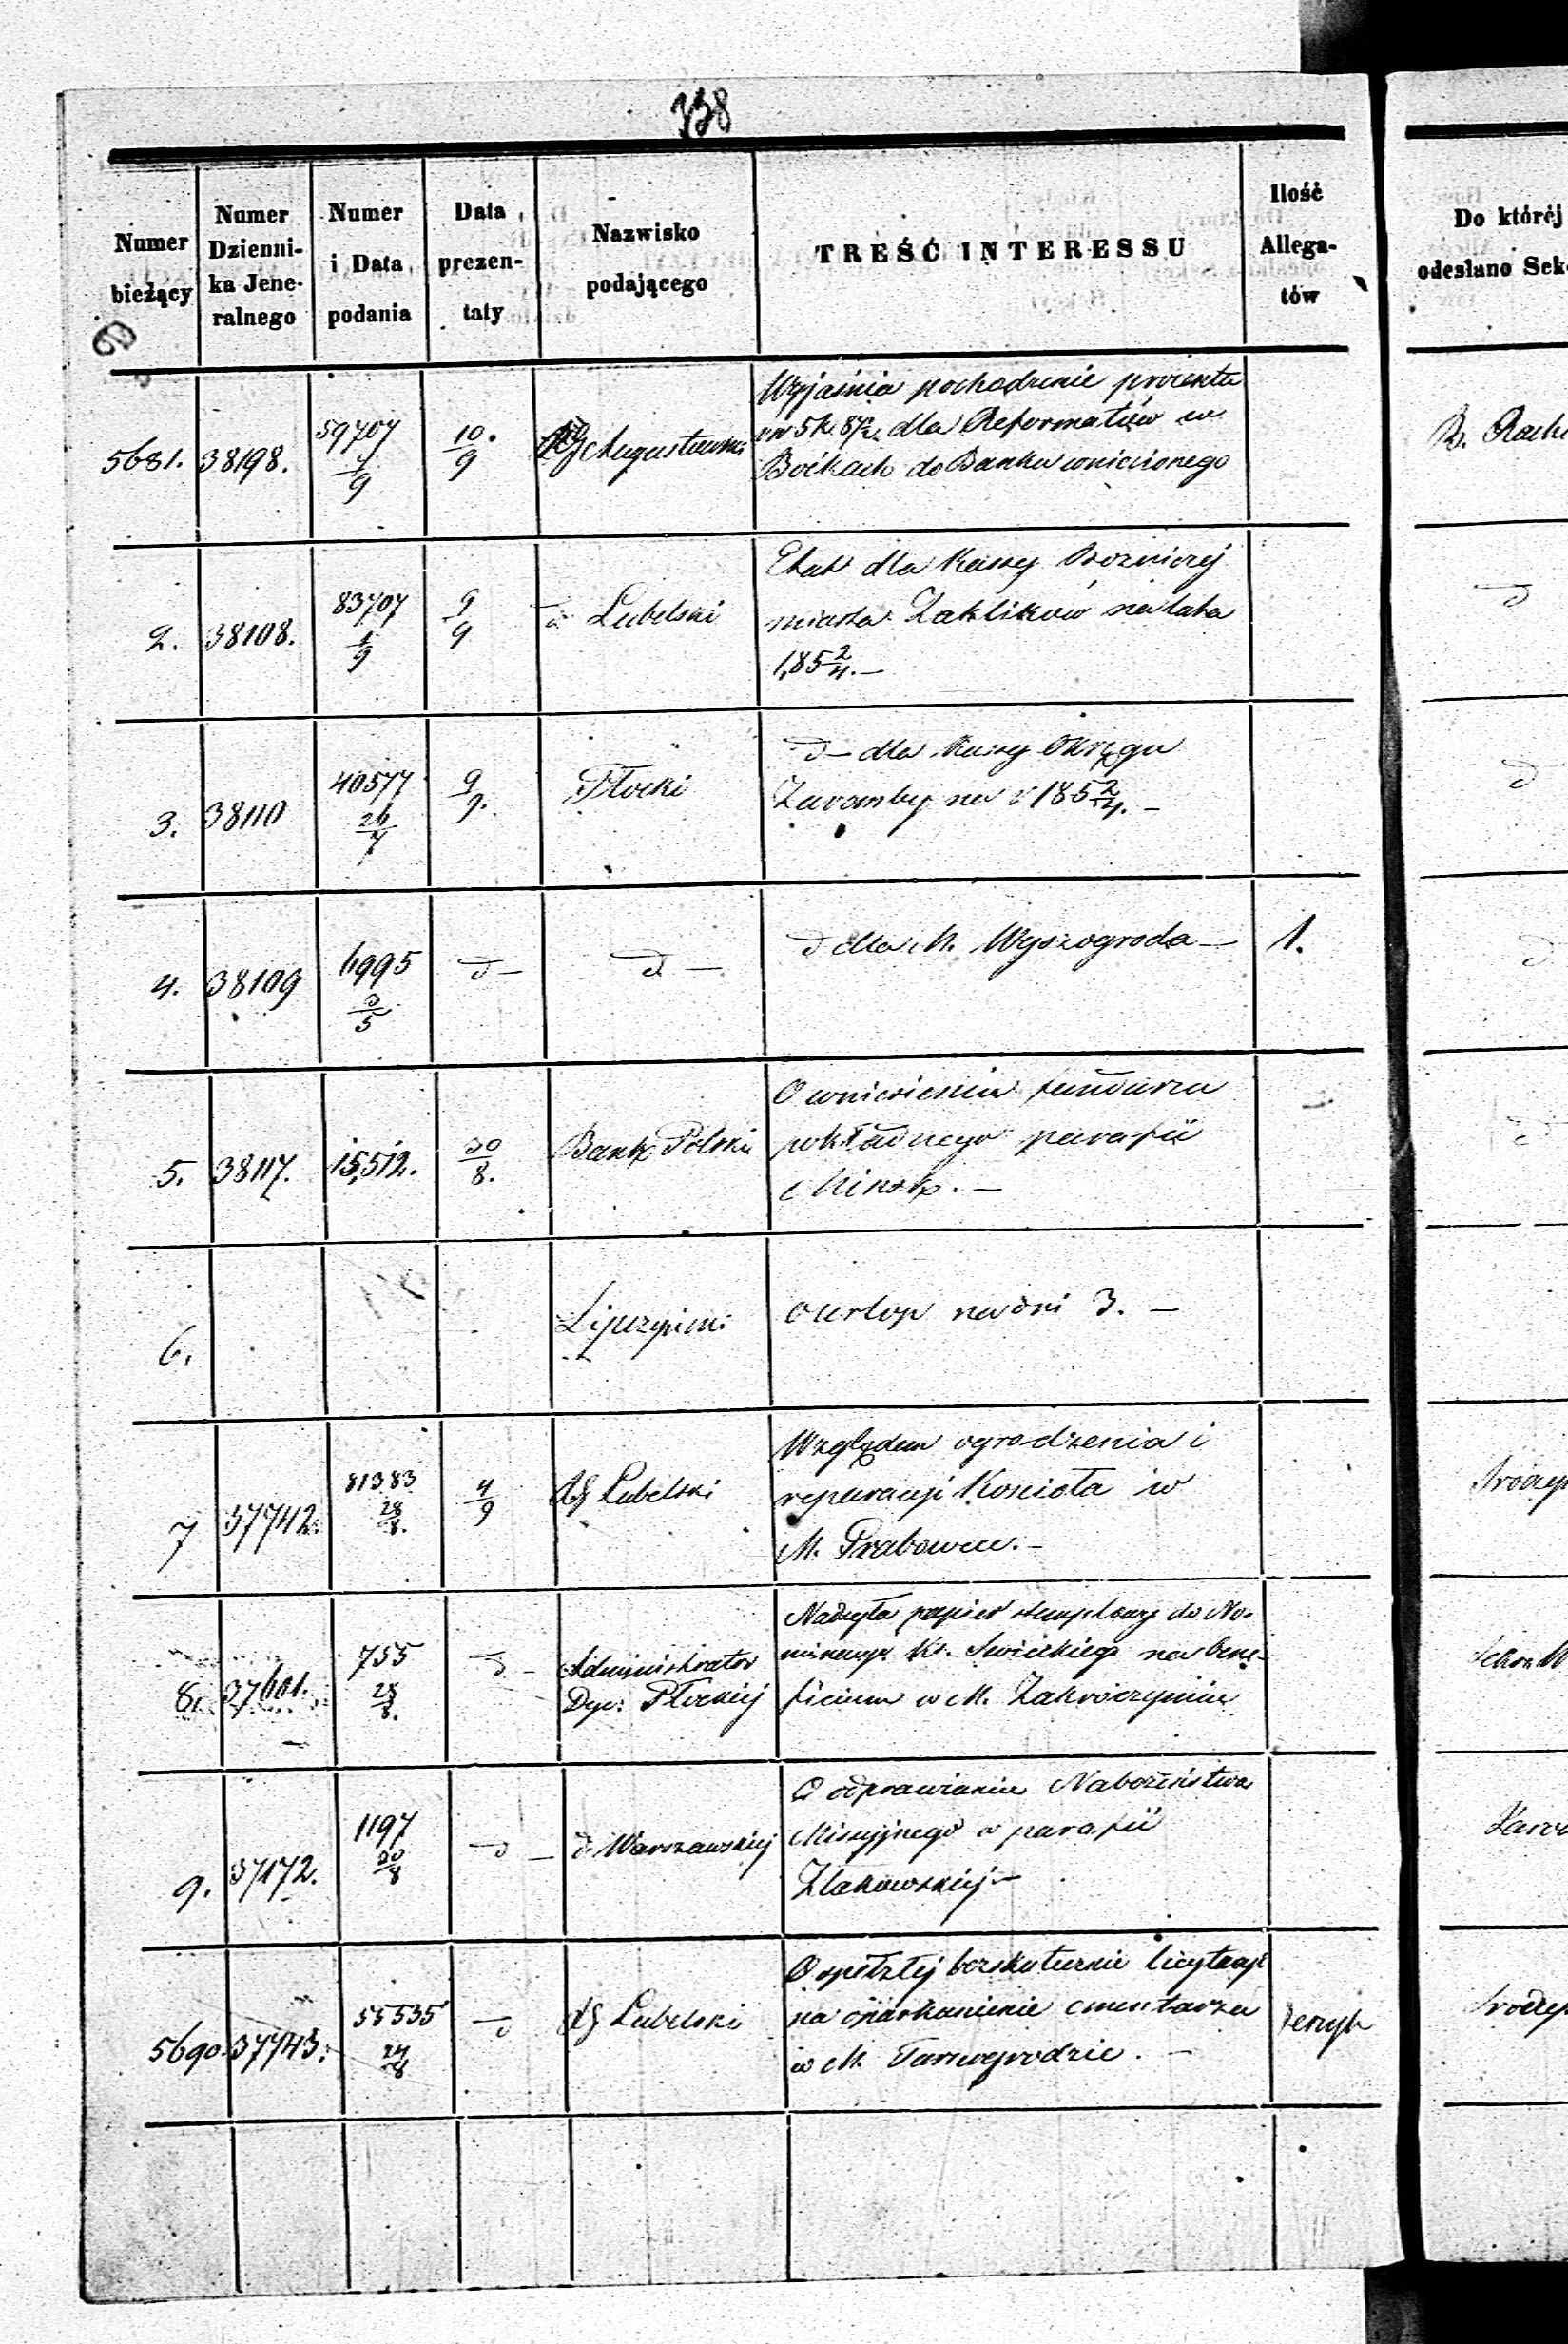 338
Numer bieżący
Numer Dzienni-ka Jene-ralnego
Numer i Data podania
Data prezen-taty
Nazwisko podającego
TREŚĆ INTERESSU
Ilość Allega-tów
Do któréj odesłano
5681. 38198. 59707 1/9 10./9 RG Augustowski
Wyjaśnia pochodzenie procentu
rsr 5 k. 87½ dla Reformatów w
Boćkach do Banku wniesionego
2. 38108. 83707 1/9 9/9 d° Lubelski
Etat dla Kassy Bożniczej
miasta Zaklikowo na lata
185 2/4. —
3. 38110 40577 26/7 9/9. Płocki
d— dla Kassy Okręgu
Zaromby na r 185 2/4. —
4. 38109 6995 3/5 d— d—
d dla M. Wyszogroda — 1.
5. 38117. 15,512. 30/8. Bank Polski
O wniesieniu funduszu
pokładnego parafii
Mińsk. —
6.
O urlop na dni 3. —
7 37742. 81383 28/8. 4/9 RG Lubelski
Względem ogrodzenia i
reparacyi Kościoła w
M. Grabowcu. —
8. 37601. 755 28/8. d— Administrator
Dyec: Płockiej
Nadsyła papier stemplowy do No-
minacyi X. Swiėckiego na bene-
ficium w M. Zakroczymiu
9. 37172. 1197 20/8 d— d. Warszawskiej
O odprawianiu Nabożeństwa
Missyjnego w parafii
Złakowskiej —
5690. 37743. 55535 24/8 d RG Lubelski
O spełzłej bezskutecznie licytacyi
na oparkanienie cmentarza
w M. Tarnogrodzie. —